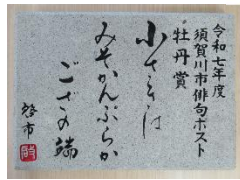 令和七年度
須賀川市俳句ポスト
牡丹賞
小さきは
みそかんぷらか
ござの端
啓市